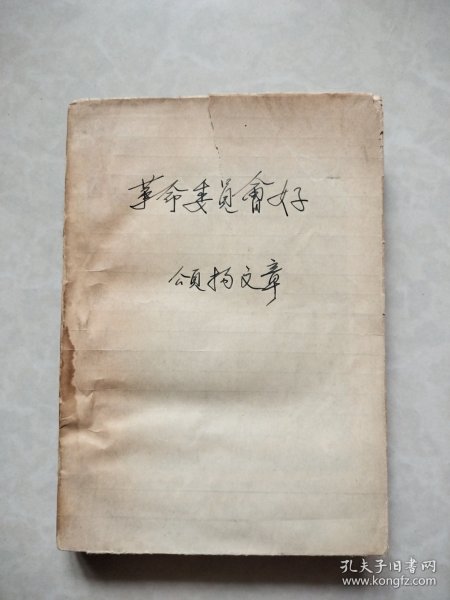 革命委员會好
颂扬文章
孔夫子旧书网
www.kongfz.com